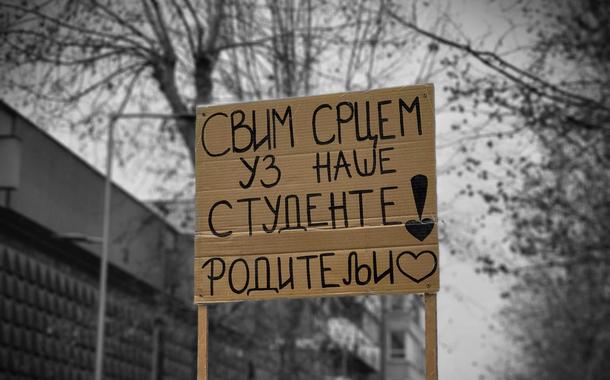 СВИМ СРЦЕМ
УЗ НАШЕ
СТУДЕНТЕ!
РОДИТЕЉИ♡